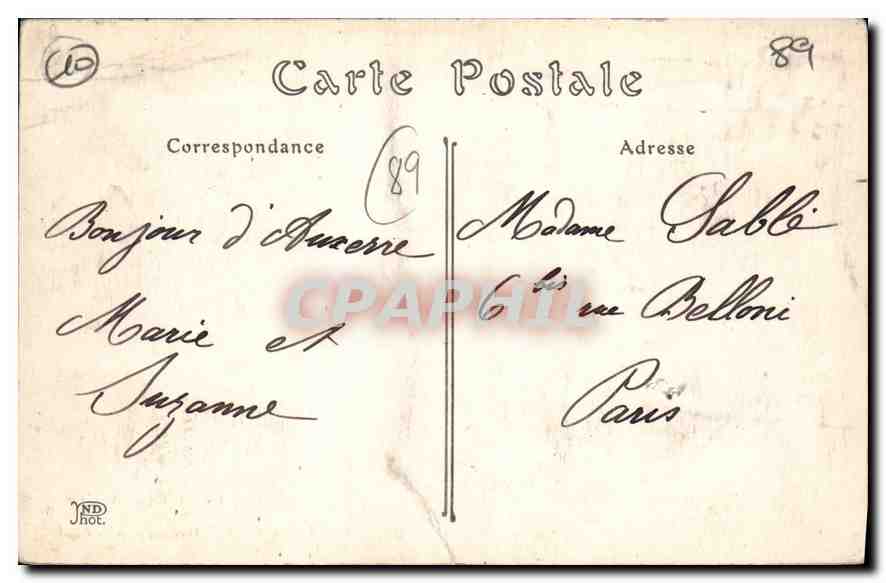 10
89
Carte Postale
Correspondance
89
Adresse
Bonjour d'Auxerre
Marie et
Suzanne
Madame Sablé
6 bis rue Belloni
Paris
CPAPHIL
ND
Phot.